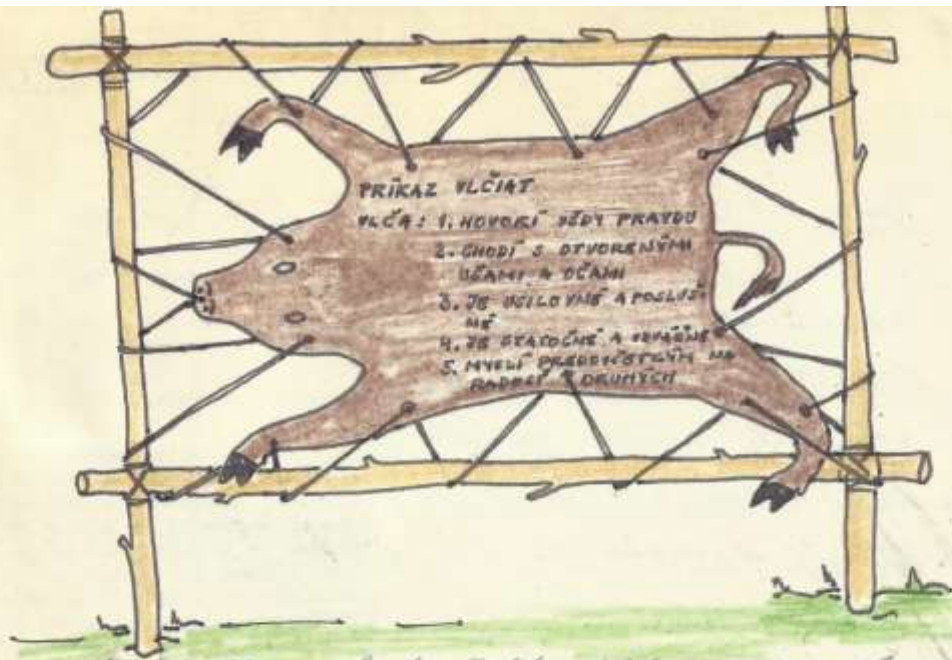 PRÍKAZ VLČIAT
VLČA: 1. HOVORÍ VŽDY PRAVDU
2. CHODÍ S OTVORENÝMI
UŠAMI A OČAMI
3. JE USILOVNÉ A POSLUŠ-
NÉ
4. JE STATOČNÉ A ODVÁŽNE
5. MYSLÍ PREDOVŠETKÝM NA
RADOSŤ DRUHÝCH